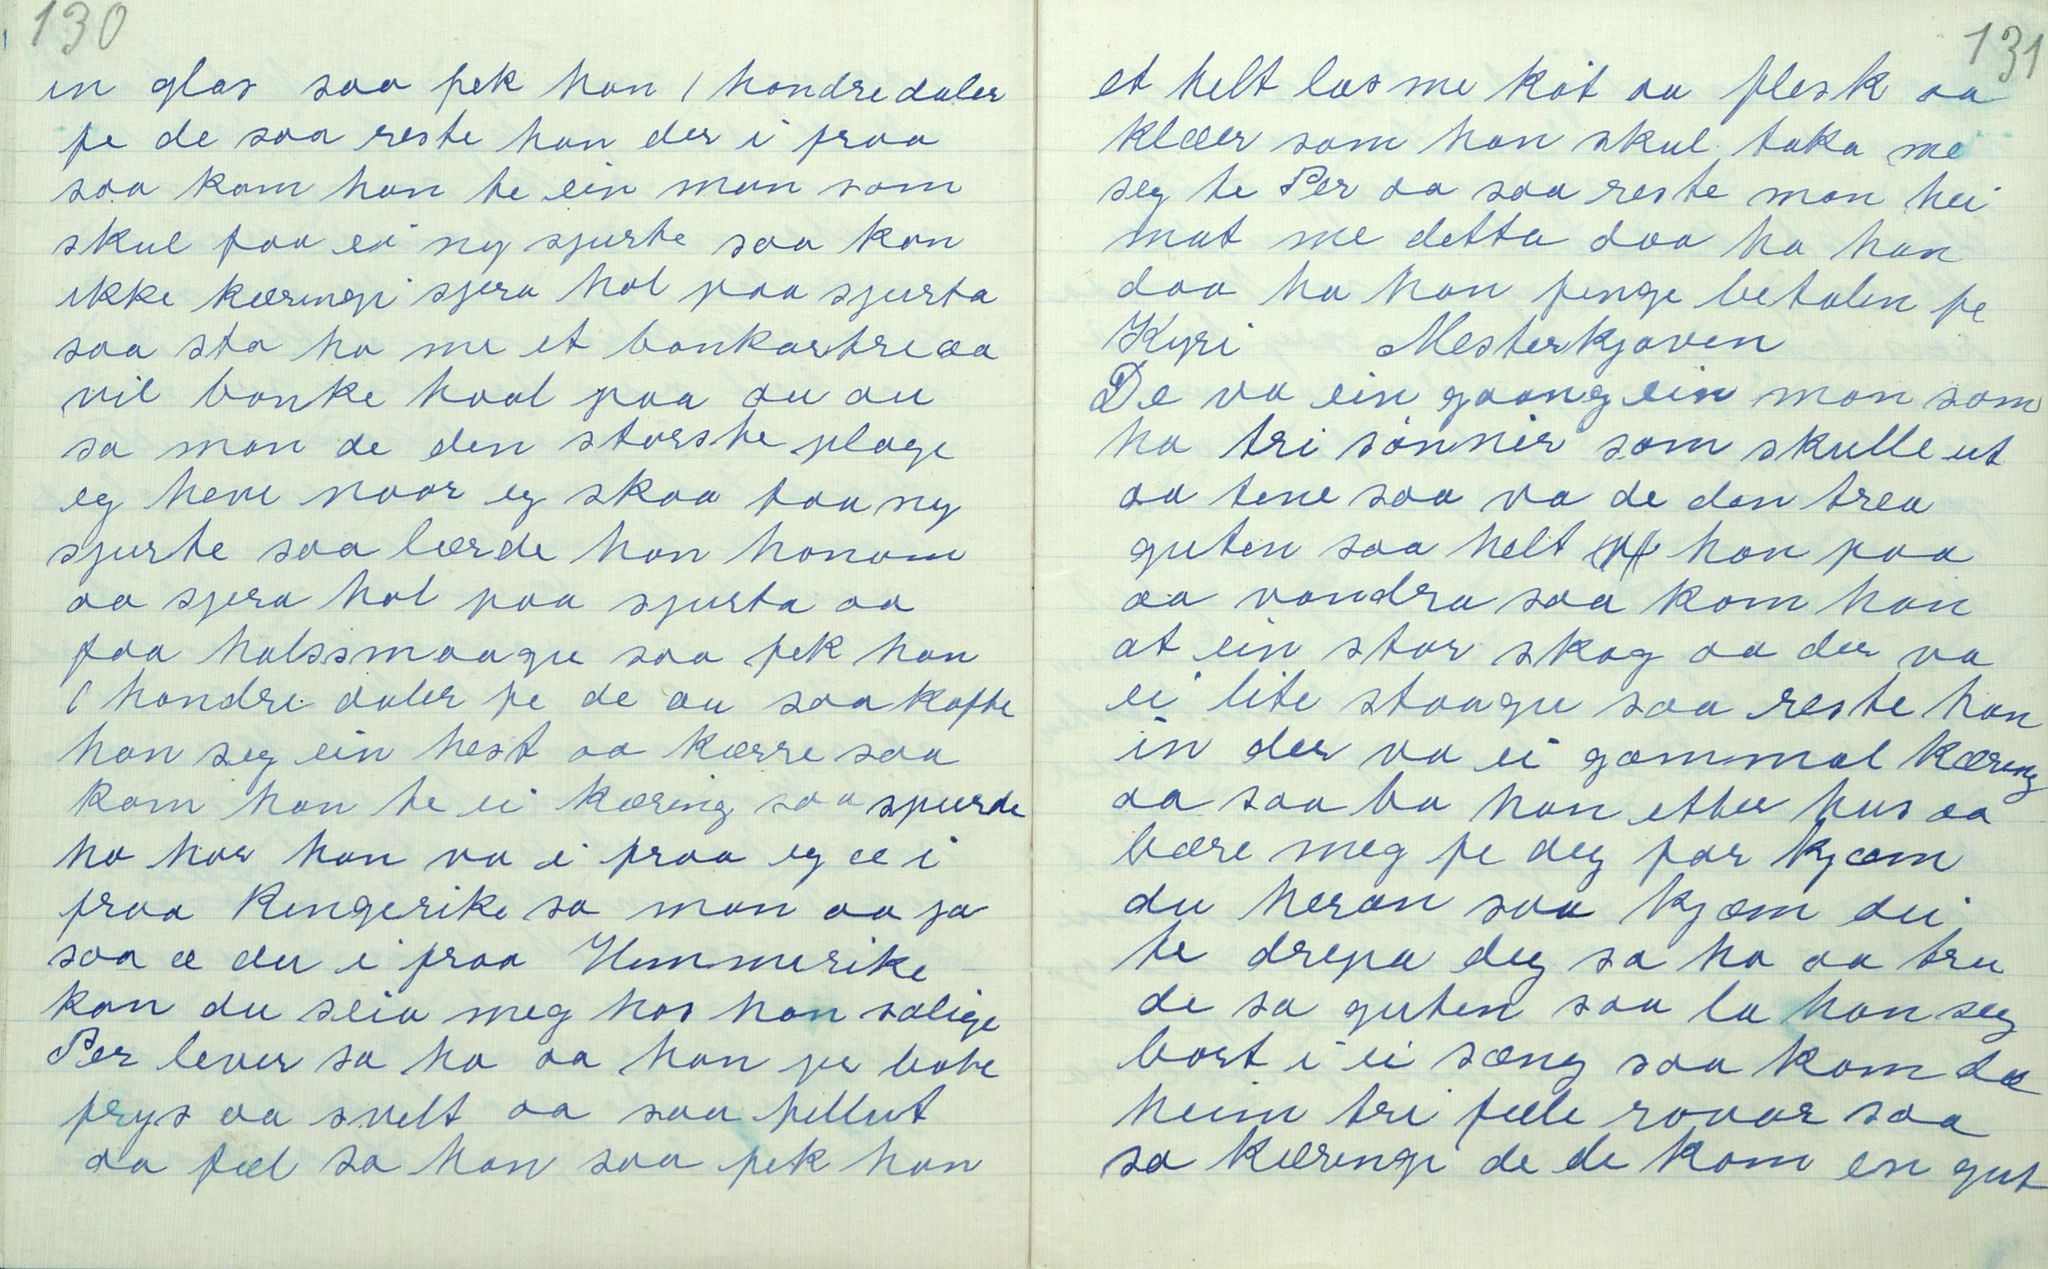 130
in glas saa fek han 1 hondre daler
fe de saa reste han der i fraa
saa kom han te ein man som
skul faa ei ny sjurte saa kan
ikke kæringi sjera hol paa sjurta
saa sto ho me et bankartre aa
vil banke haal paa au au
sa man de den storste plage
eg heve naar eg skaa faa ny
sjurte saa lærde han honom
aa sjera hol paa sjurta aa
faa halssmaagu saa fek han
1 hondre daler fe de au saa kofte
han seg ein hest aa kærre saa
kom han te ei kæring saa spurde
ho hor han va i fraa eg æ i
fraa Ringerike sa man aa ja
saa æ du i fraa Himmerike
kan du seia meg hos han salige
Per lever sa ho aa han je baae
frys aa svelt aa saa fillut
aa fæl sa han saa fek han
131
et helt las me köt aa flesk aa
klæer som han skul taka me
seg te Per aa saa reste man hei
mat me detta daa ha han
daa ha han penge betalen fe
Kyri Mesterkjoven
De va ein gaang ein man som
ha tri sönner som skulle ut
aa tene saa va de den trea
guten saa helt han paa
aa vandra saa kom han
at ein stor skog aa der va
ei lite staagu saa reste han
in der va ei gammal kæring
aa saa ba han etter hus aa
bære meg fe deg far kjæm
du heran saa kjæm dei
te drepa deg sa ho aa tru
de sa guten saa la han seg
bort i ei sæng saa kom dæ
heim tri fæle rovar saa
sa kæringi de de kom en gut